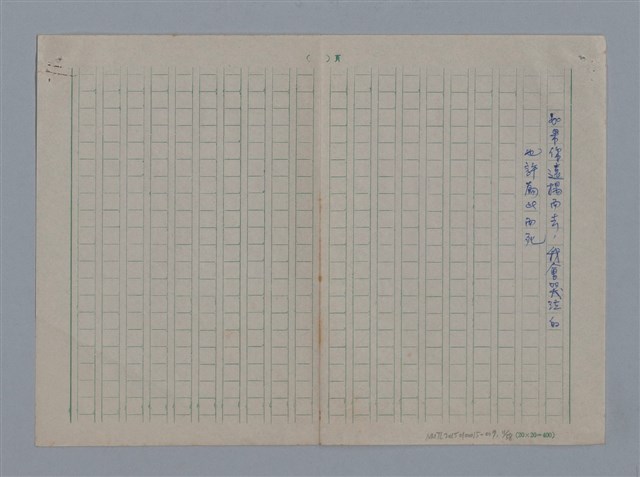 ( )頁
如果你遺棄而去，我會哭泣的
也許為此而死
(20×20=400)